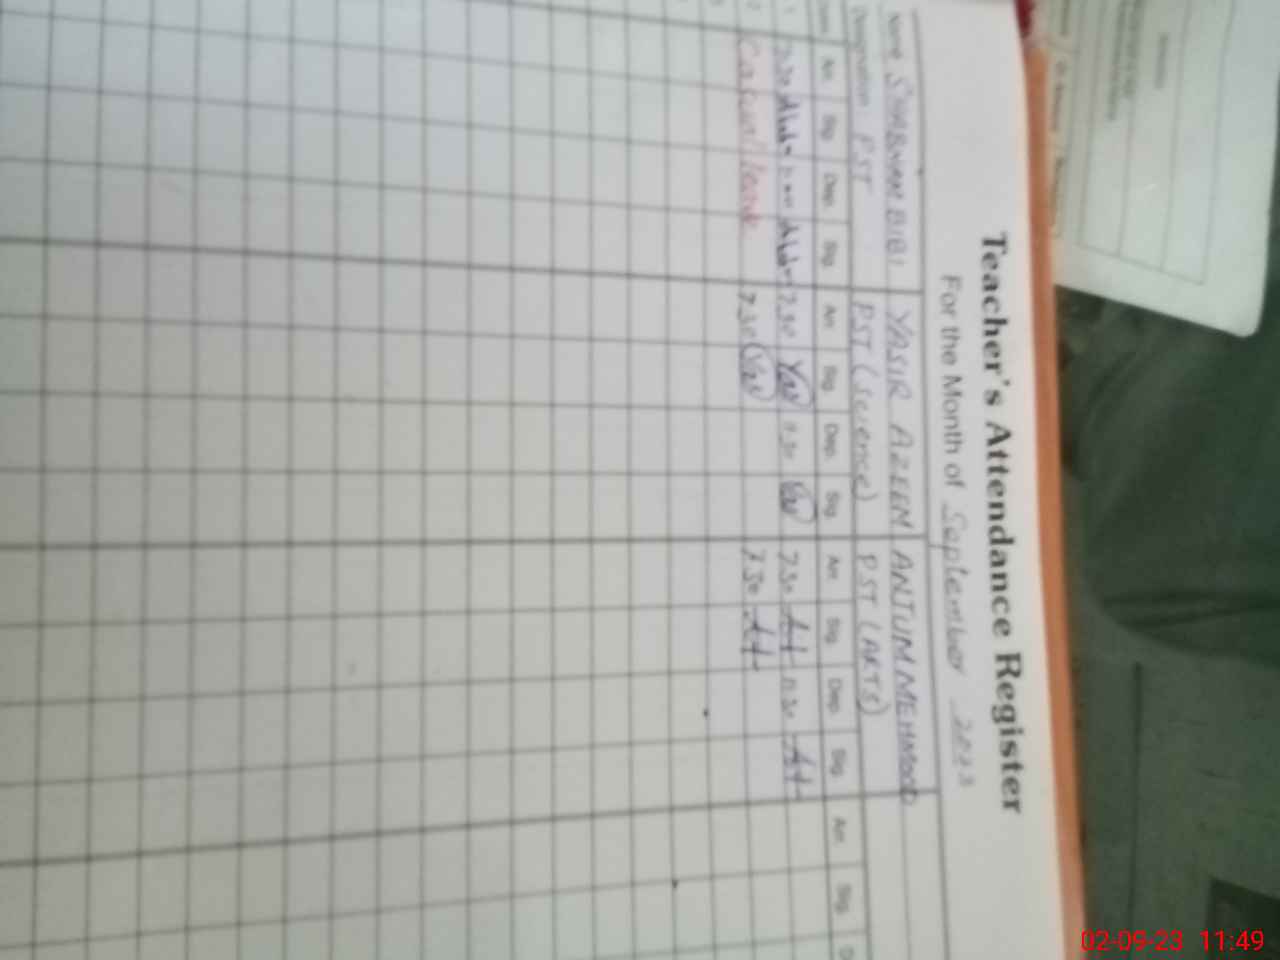 Teacher's Attendance Register
For the Month of September 2023
Name SHABNAM BIBI YASIR AZEEM ANJUM MEHMOOD
Designation PST PST (Science) PST (ARTS)
Arr. Sig. Dep. Sig. Arr. Sig. Dep. Sig. Arr. Sig. Dep. Sig. Arr. Sig.
1 7.30 7.30 11.30 7.30 11.30
2 Casual leave 7.30 7.30
3
02-09-23 11:49